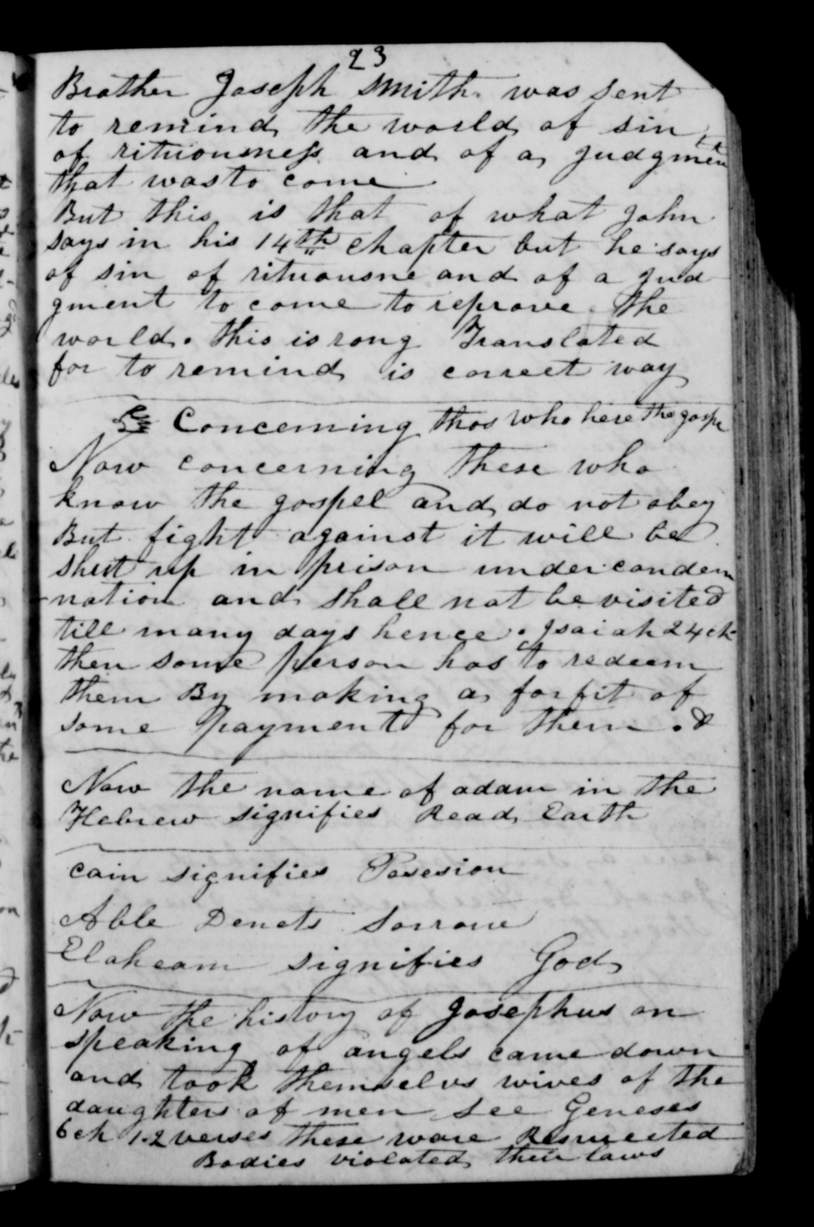 23
Brother Joseph Smith was sent
to remind the world of sin
of rituousness and of a judgment
that was to come
But this is that of what John
says in his 14th chapter but he says
of sin of rituousne and of a jud
gment to come to reprove the
world. this is rong Translated
for to remind is correct way
Concerning thos who here the gospe
Now concerning these who
know the gospel and do not obey
But fight against it will be
shut up in prison under condem
nation and shall not be visited
till many days hence. Isaiah 24 ch
then some person has to redeem
them By making a forfit of
some payment for them. &
Now the name of adam in the
Hebrew signifies Read Earth
cain signifies Posesion
Able Denots Sorrow
Elaheam signifies God
Now the history of Josephus on
speaking of angels came down
and took themselvs wives of the
daughters of men see Geneses
6 ch 1-2 verses these ware Resurected
Bodies violated their laws